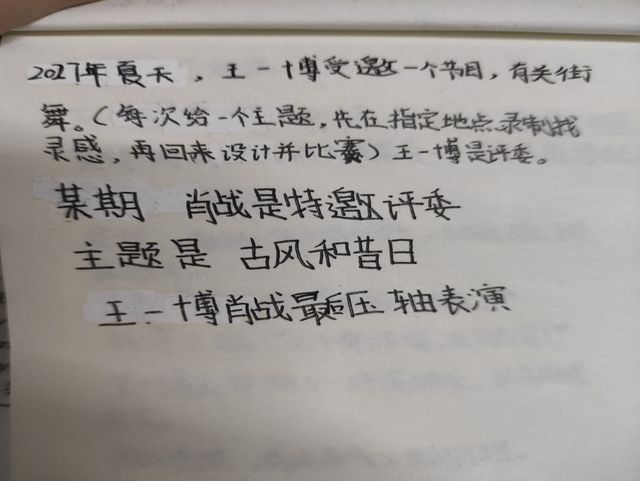 2027年夏天，王一博受邀一个节目，有关街
舞。（每次给一个主题，先在指定地点录制找
灵感，再回来设计并比赛）王一博是评委。
某期 肖战是特邀评委
主题是 古风和昔日
王一博肖战最后压轴表演